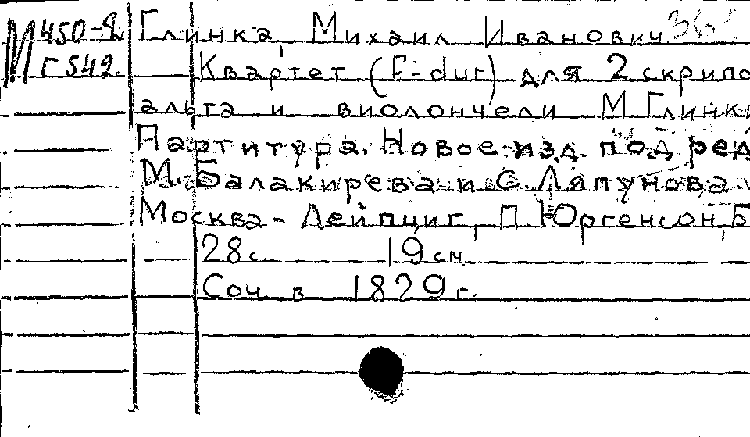 М 450-4 Глинка, Михаил Иванович
Г 549. Квартет (F-dur) для 2 скрипо
альта и виолончели М. Глинки
Партитура. Новое изд. под ред
М. Балакирева и С. Ляпунова
Москва - Лейпциг, П. Юргенсон, Б
28 с. 19 см.
Соч. в 1829 г.